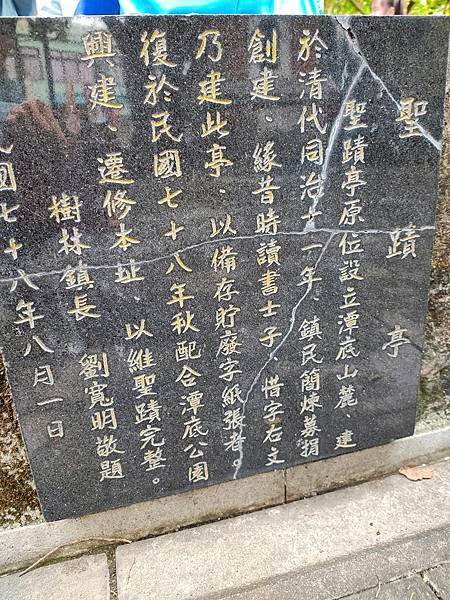 聖蹟亭
聖蹟亭原位設立潭底山麓、建
於清代同治十一年、鎮民簡煉募捐
創建、緣昔時讀書士子、惜字右文
乃建此亭、以備存貯廢字紙張者。
復於民國七十八年秋配合潭底公園
興建、遷修本址、以維聖蹟完整。
樹林鎮長 劉寬明敬題
民國七十八年八月一日